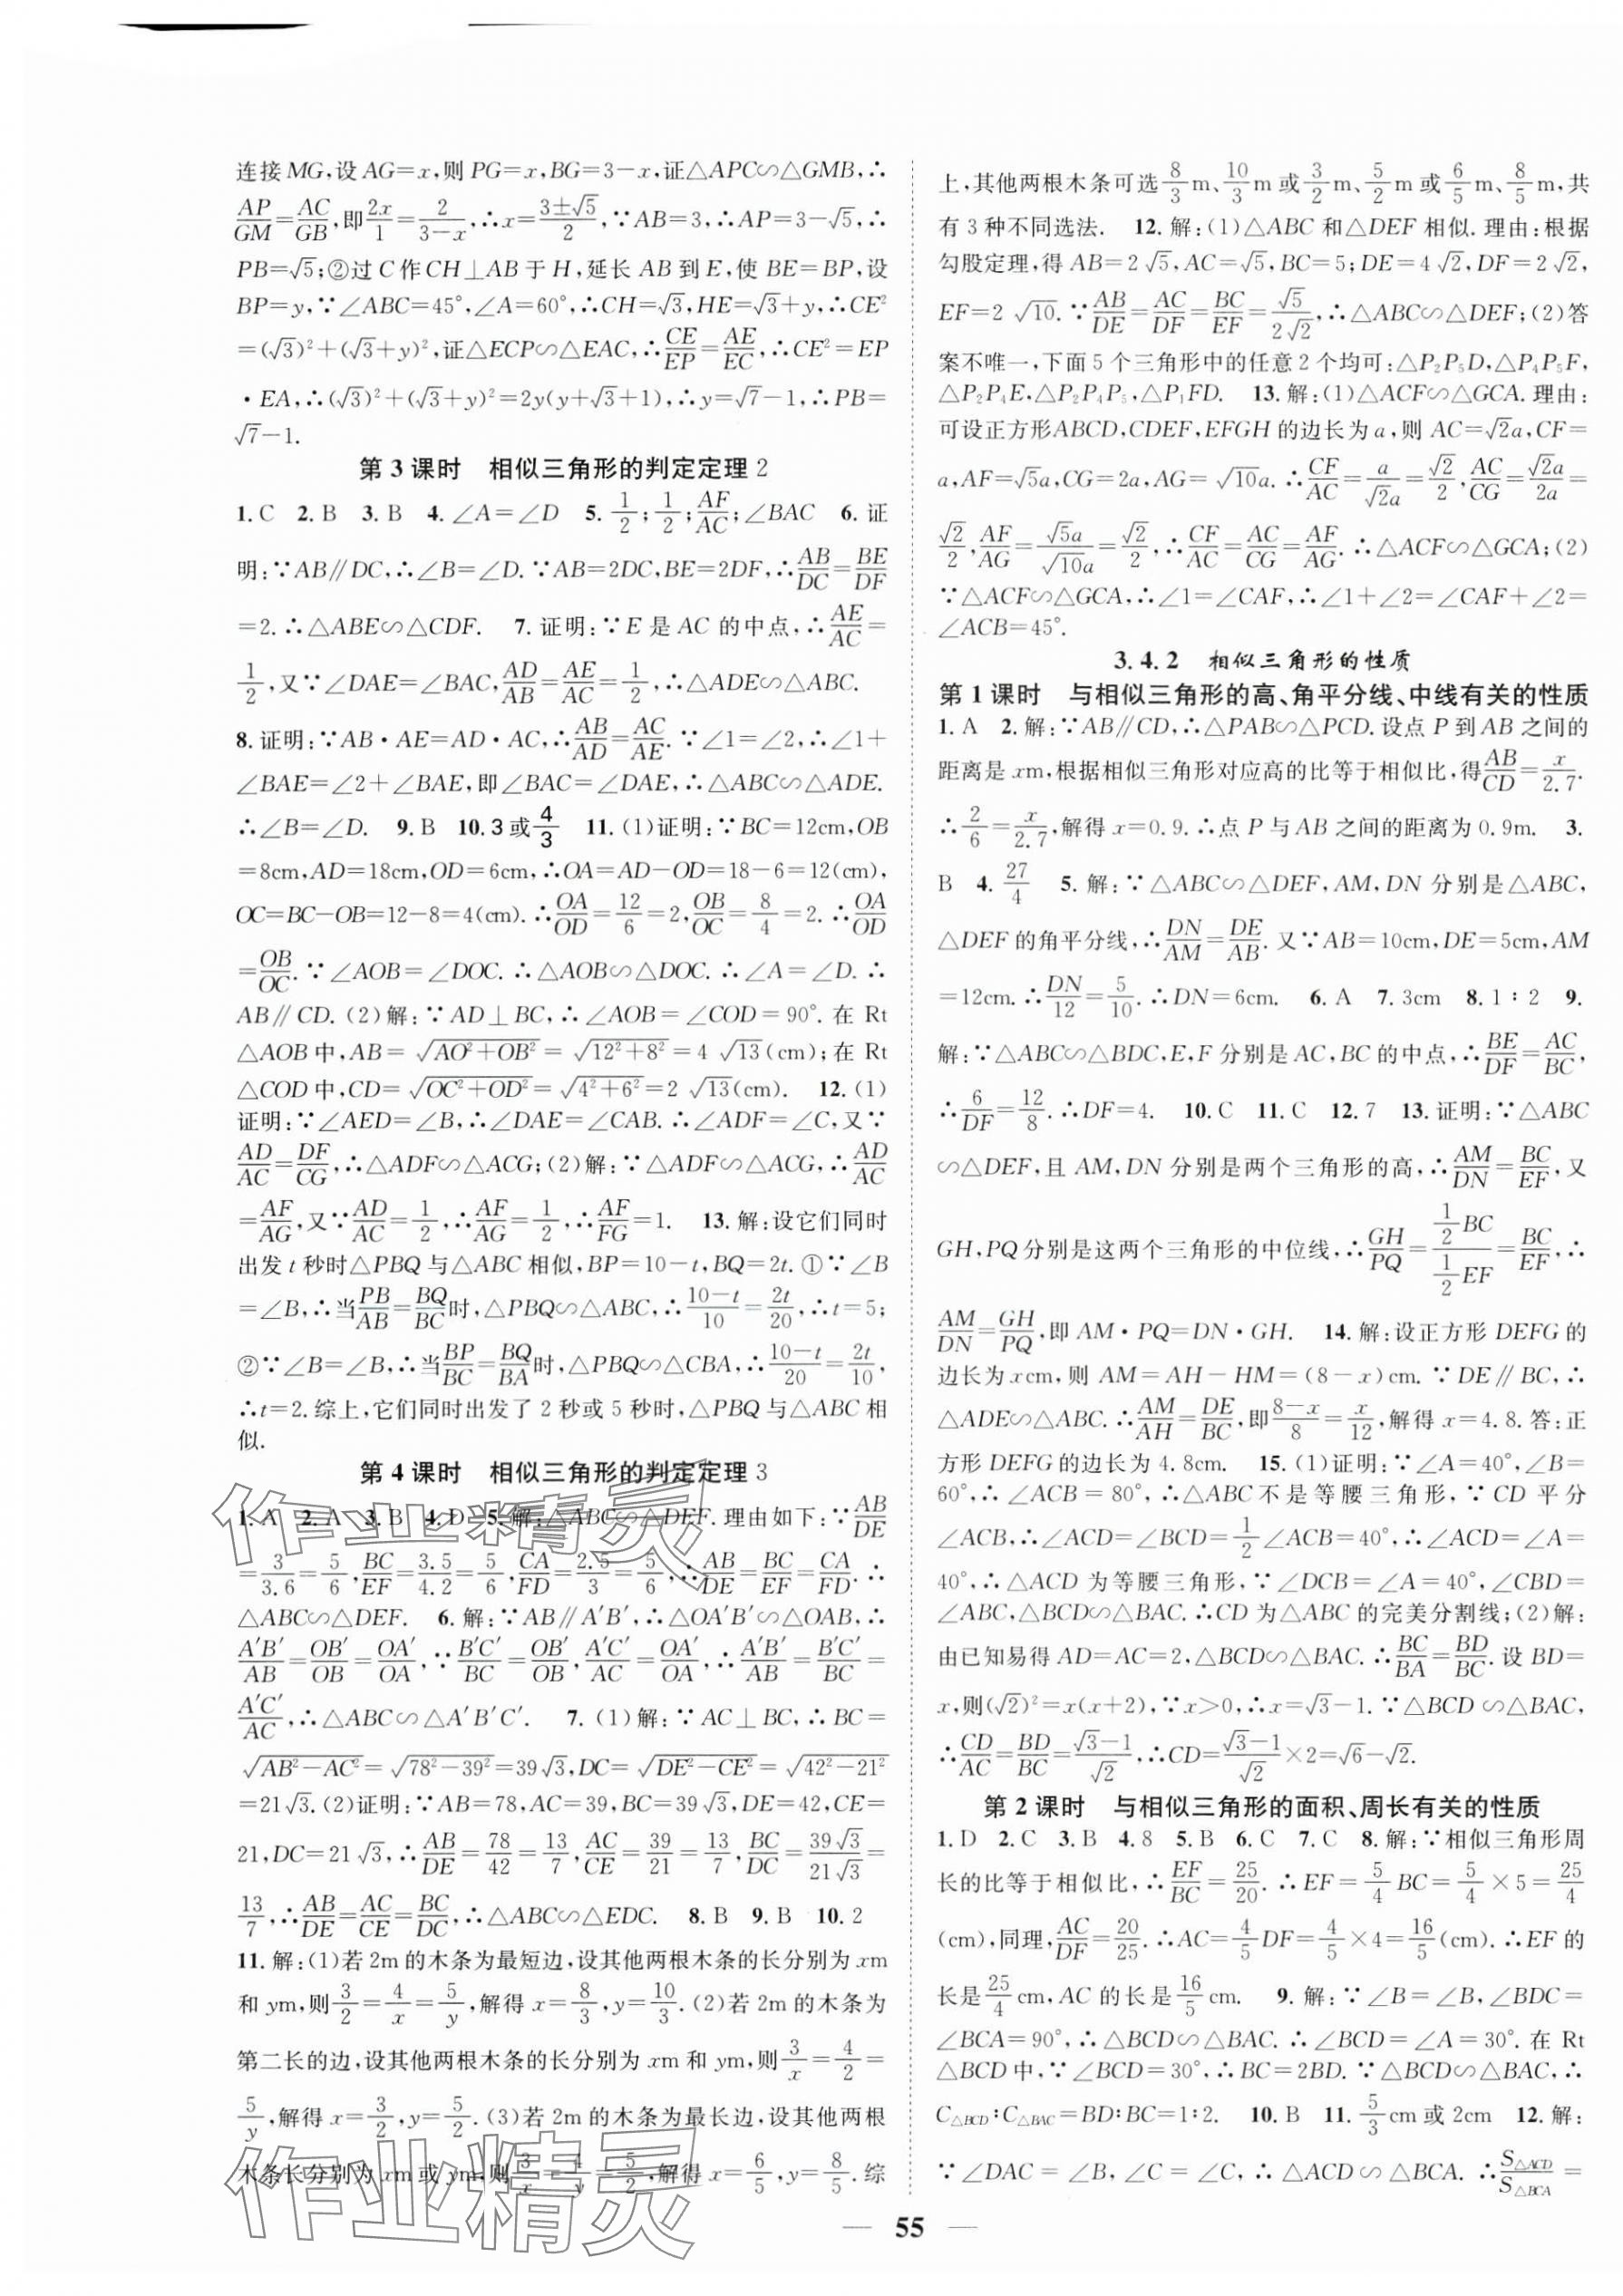 连接MG,设AG=x,则PG=x,BG=3-x,证△APC∽△GMB,∴
AP/GM=AC/GB,即2x/1=2/(3-x),∴x=(3±√5)/2,∵AB=3,∴AP=3-√5,∴
PB=√5;②过C作CH⊥AB于H,延长AB到E,使BE=BP,设
BP=y,∵∠ABC=45°,∠A=60°,∴CH=√3,HE=√3+y,∴CE²
=(√3)²+(√3+y)²,证△ECP∽△EAC,∴CE/EP=AE/EC,∴CE²=EP
·EA,∴(√3)²+(√3+y)²=2y(y+√3+1),∴y=√7-1,∴PB=
√7-1.
第3课时 相似三角形的判定定理2
1.C 2.B 3.B 4.∠A=∠D 5.1/2;1/2;AF/AC;∠BAC 6.证
明:∵AB∥DC,∴∠B=∠D.∵AB=2DC,BE=2DF,∴AB/DC=BE/DF
=2.∴△ABE∽△CDF. 7.证明:∵E是AC的中点,∴AE/AC=
1/2,又∵∠DAE=∠BAC,AD/AB=AE/AC=1/2,∴△ADE∽△ABC.
8.证明:∵AB·AE=AD·AC,∴AB/AD=AC/AE.∵∠1=∠2,∴∠1+
∠BAE=∠2+∠BAE,即∠BAC=∠DAE,∴△ABC∽△ADE.
∴∠B=∠D. 9.B 10.3或4/3 11.(1)证明:∵BC=12cm,OB
=8cm,AD=18cm,OD=6cm,∴OA=AD-OD=18-6=12(cm),
OC=BC-OB=12-8=4(cm).∴OA/OD=12/6=2,OB/OC=8/4=2.∴OA/OD
=OB/OC.∵∠AOB=∠DOC.∴△AOB∽△DOC.∴∠A=∠D.∴
AB∥CD.(2)解:∵AD⊥BC,∴∠AOB=∠COD=90°.在Rt
△AOB中,AB=√(AO²+OB²)=√(12²+8²)=4√13(cm);在Rt
△COD中,CD=√(OC²+OD²)=√(4²+6²)=2√13(cm). 12.(1)
证明:∵∠AED=∠B,∴∠DAE=∠CAB.∴∠ADF=∠C,又∵
AD/AC=DF/CG,∴△ADF∽△ACG;(2)解:∵△ADF∽△ACG,∴AD/AC
=AF/AG,又∵AD/AC=1/2,∴AF/AG=1/2,∴AF/FG=1. 13.解:设它们同时
出发t秒时△PBQ与△ABC相似,BP=10-t,BQ=2t.①∵∠B
=∠B,∴当PB/AB=BQ/BC时,△PBQ∽△ABC,∴(10-t)/10=2t/20,∴t=5;
②∵∠B=∠B,∴当BP/BC=BQ/BA时,△PBQ∽△CBA,∴(10-t)/20=2t/10,
∴t=2.综上,它们同时出发了2秒或5秒时,△PBQ与△ABC相
似.
第4课时 相似三角形的判定定理3
1.A 2.A 3.B 4.D 5.解:△ABC∽△DEF.理由如下:∵AB/DE
=3/3.6=5/6,BC/EF=3.5/4.2=5/6,CA/FD=2.5/3=5/6,∴AB/DE=BC/EF=CA/FD.∴
△ABC∽△DEF. 6.解:∵AB∥A′B′,∴△OA′B′∽△OAB,∴
A′B′/AB=OB′/OB=OA′/OA,∵B′C′/BC=OB′/OB,A′C′/AC=OA′/OA,∴A′B′/AB=B′C′/BC=
A′C′/AC,∴△ABC∽△A′B′C′. 7.(1)解:∵AC⊥BC,∴BC=
√(AB²-AC²)=√(78²-39²)=39√3,DC=√(DE²-CE²)=√(42²-21²)
=21√3.(2)证明:∵AB=78,AC=39,BC=39√3,DE=42,CE=
21,DC=21√3,∴AB/DE=78/42=13/7,AC/CE=39/21=13/7,BC/DC=39√3/21√3=
13/7,∴AB/DE=AC/CE=BC/DC,∴△ABC∽△EDC. 8.B 9.B 10.2
11.解:(1)若2m的木条为最短边,设其他两根木条的长分别为xm
和ym,则3/2=4/x=5/y,解得x=8/3,y=10/3.(2)若2m的木条为
第二长的边,设其他两根木条的长分别为xm和ym,则3/x=4/2=
5/y,解得x=3/2,y=5/2.(3)若2m的木条为最长边,设其他两根
木条长分别为xm或ym,则3/x=4/y=5/2,解得x=6/5,y=8/5.综
上,其他两根木条可选8/3m、10/3m或3/2m、5/2m或6/5m、8/5m,共
有3种不同选法. 12.解:(1)△ABC和△DEF相似.理由:根据
勾股定理,得AB=2√5,AC=√5,BC=5;DE=4√2,DF=2√2,
EF=2√10.∵AB/DE=AC/DF=BC/EF=√5/2√2,∴△ABC∽△DEF;(2)答
案不唯一,下面5个三角形中的任意2个均可:△P₂P₅D,△P₄P₅F,
△P₂P₄E,△P₂P₄P₅,△P₁FD. 13.解:(1)△ACF∽△GCA.理由:
可设正方形ABCD,CDEF,EFGH的边长为a,则AC=√2a,CF=
a,AF=√5a,CG=2a,AG=√10a.∴CF/AC=a/√2a=√2/2,AC/CG=√2a/2a=
√2/2,AF/AG=√5a/√10a=√2/2,∴CF/AC=AC/CG=AF/AG.∴△ACF∽△GCA;(2)
∵△ACF∽△GCA,∴∠1=∠CAF,∴∠1+∠2=∠CAF+∠2=
∠ACB=45°.
3.4.2 相似三角形的性质
第1课时 与相似三角形的高、角平分线、中线有关的性质
1.A 2.解:∵AB∥CD,∴△PAB∽△PCD.设点P到AB之间的
距离是xm,根据相似三角形对应高的比等于相似比,得AB/CD=x/2.7.
∴2/6=x/2.7,解得x=0.9.∴点P与AB之间的距离为0.9m. 3.
B 4.27/4 5.解:∵△ABC∽△DEF,AM,DN分别是△ABC,
△DEF的角平分线,∴DN/AM=DE/AB.又∵AB=10cm,DE=5cm,AM
=12cm.∴DN/12=5/10.∴DN=6cm. 6.A 7.3cm 8.1∶2 9.
解:∵△ABC∽△BDC,E,F分别是AC,BC的中点,∴BE/DF=AC/BC,
∴6/DF=12/8.∴DF=4. 10.C 11.C 12.7 13.证明:∵△ABC
∽△DEF,且AM,DN分别是两个三角形的高,∴AM/DN=BC/EF,又
GH,PQ分别是这两个三角形的中位线,∴GH/PQ=(1/2BC)/(1/2EF)=BC/EF,∴
AM/DN=GH/PQ,即AM·PQ=DN·GH. 14.解:设正方形DEFG的
边长为xcm,则AM=AH-HM=(8-x)cm.∵DE∥BC,∴
△ADE∽△ABC.∴AM/AH=DE/BC,即(8-x)/8=x/12,解得x=4.8.答:正
方形DEFG的边长为4.8cm. 15.(1)证明:∵∠A=40°,∠B=
60°,∴∠ACB=80°,∴△ABC不是等腰三角形,∵CD平分
∠ACB,∴∠ACD=∠BCD=1/2∠ACB=40°,∴∠ACD=∠A=
40°,∴△ACD为等腰三角形,∵∠DCB=∠A=40°,∠CBD=
∠ABC,△BCD∽△BAC.∴CD为△ABC的完美分割线;(2)解:
由已知易得AD=AC=2,△BCD∽△BAC.∴BC/BA=BD/BC.设BD=
x,则(√2)²=x(x+2),∵x>0,∴x=√3-1.∵△BCD∽△BAC,
∴CD/AC=BD/BC=(√3-1)/√2,∴CD=(√3-1)/√2×2=√6-√2.
第2课时 与相似三角形的面积、周长有关的性质
1.D 2.C 3.B 4.8 5.B 6.C 7.C 8.解:∵相似三角形周
长的比等于相似比,∴EF/BC=25/20.∴EF=5/4BC=5/4×5=25/4
(cm),同理,AC/DF=20/25.∴AC=4/5DF=4/5×4=16/5(cm).∴EF的
长是25/4cm,AC的长是16/5cm. 9.解:∵∠B=∠B,∠BDC=
∠BCA=90°,∴△BCD∽△BAC.∴∠BCD=∠A=30°.在Rt
△BCD中,∵∠BCD=30°,∴BC=2BD.∵△BCD∽△BAC,∴
C△BCD∶C△BAC=BD∶BC=1∶2. 10.B 11.5/3cm或2cm 12.解:
∵∠DAC=∠B,∠C=∠C,∴△ACD∽△BCA.∴S△ACD/S△BCA=
— 55 —
作业精灵
作业精灵